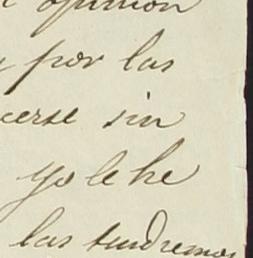 opinion
por las
cerse sin
yo le he
las tendremos